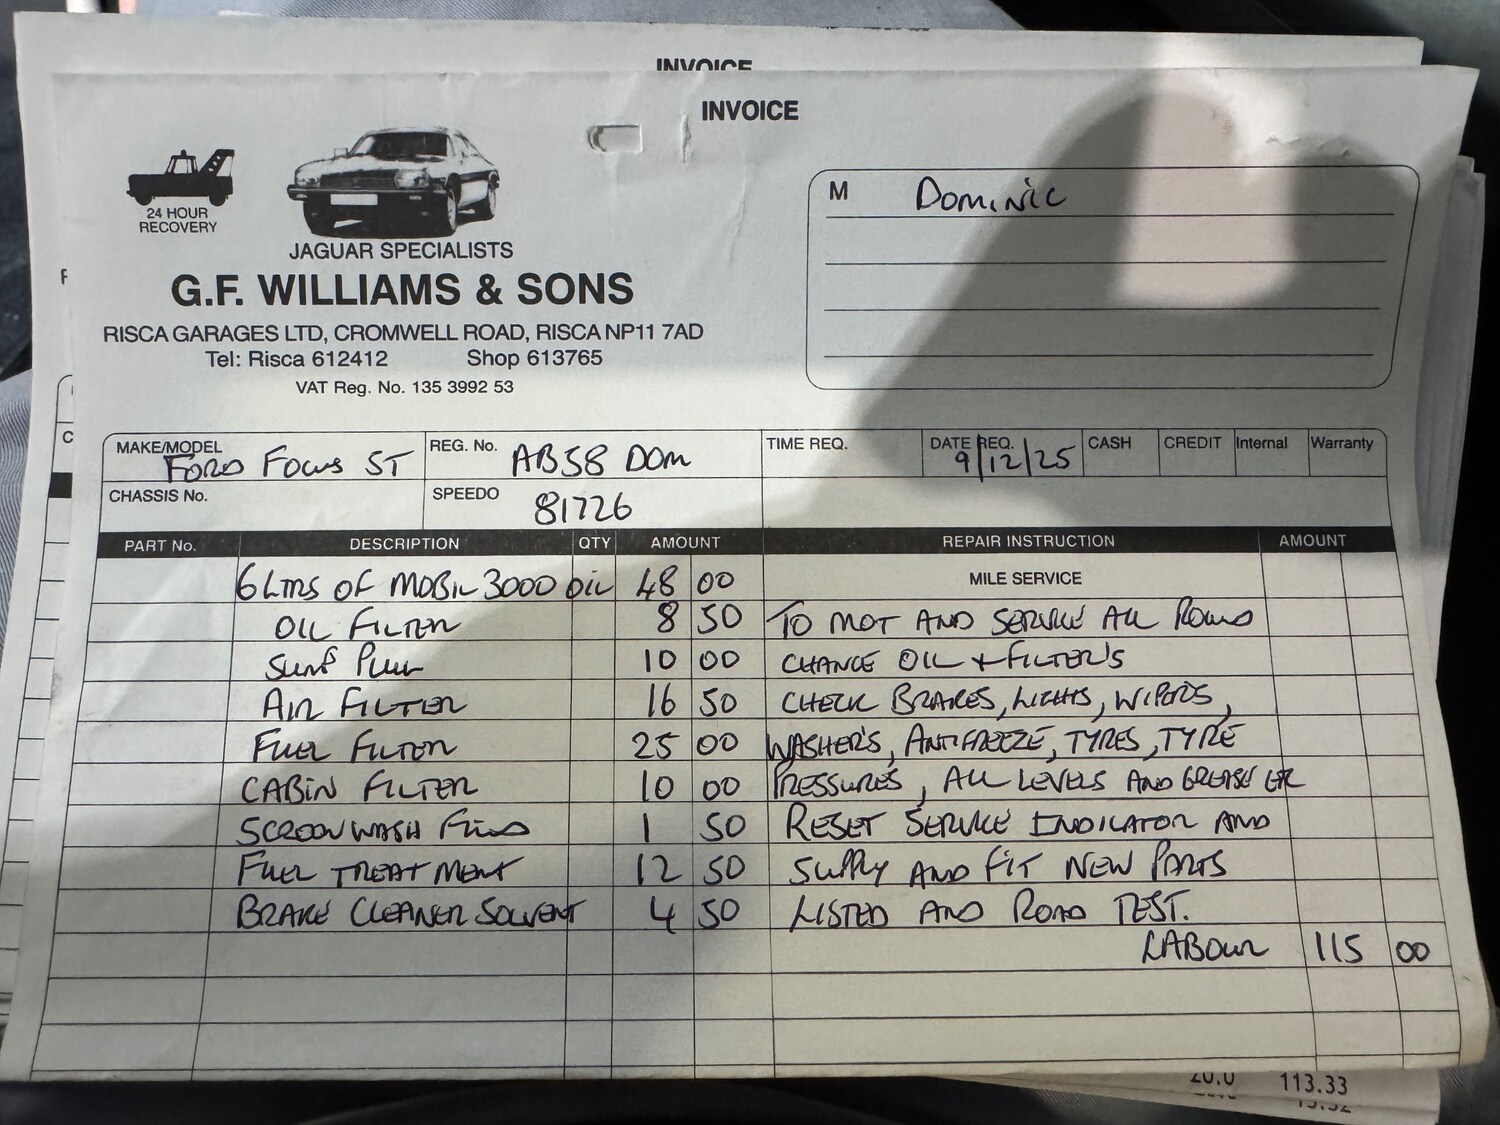 INVOICE
INVOICE
24 HOUR
RECOVERY
JAGUAR SPECIALISTS
G.F. WILLIAMS & SONS
RISCA GARAGES LTD, CROMWELL ROAD, RISCA NP11 7AD
Tel: Risca 612412 Shop 613765
VAT Reg. No. 135 3992 53
M Dominic
MAKE/MODEL FORD FOCUS ST REG. No. AB58 DOM TIME REQ. DATE REQ. 9/12/25 CASH CREDIT Internal Warranty
CHASSIS No. SPEEDO 81726
PART No. DESCRIPTION QTY AMOUNT REPAIR INSTRUCTION AMOUNT
6 LTRS OF MOBIL 3000 OIL 48 00 MILE SERVICE
OIL FILTER 8 50 TO MOT AND SERVICE ALL ROUND
SUMP PLUG 10 00 CHANGE OIL + FILTER'S
AIR FILTER 16 50 CHECK BRAKES, LIGHTS, WIPERS,
FUEL FILTER 25 00 WASHER'S, ANTIFREEZE, TYRES, TYRE
CABIN FILTER 10 00 PRESSURES, ALL LEVELS AND GREASE ETC
SCREENWASH FLUID 1 50 RESET SERVICE INDICATOR AND
FUEL TREATMENT 12 50 SUPPLY AND FIT NEW PARTS
BRAKE CLEANER SOLVENT 4 50 LISTED AND ROAD TEST.
LABOUR 115 00
20.0 113.33